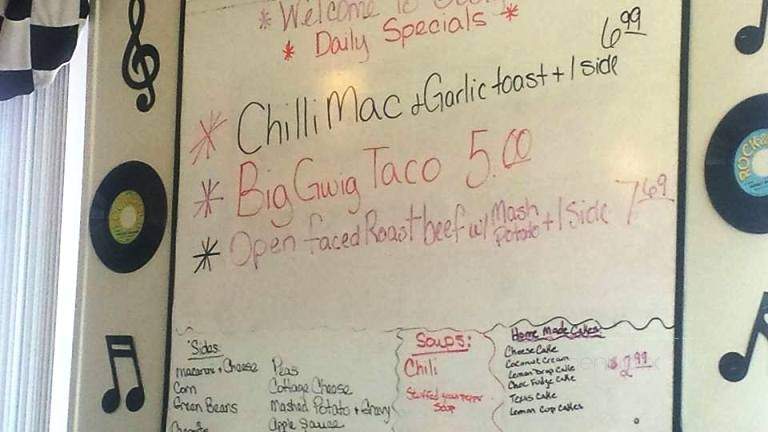 Welcome to
* Daily Specials *
* Chilli Mac + Garlic toast + 1 side 6.99
* Big Gwig Taco 5.00
* Open faced Roast beef w/ Mash Potato + 1 Side 7.69
Sides
Macaroni + Cheese
Corn
Green Beans
Peas
Cottage Cheese
Mashed Potato + Gravy
Apple Sauce
Soups:
Chili
Stuffed Soup
Home Made Cakes
Cheese Cake
Coconut Cream
Lemon Drop Cake
Choc Fudge Cake
Texas Cake
Lemon Cup Cakes
$2.99
ROCK